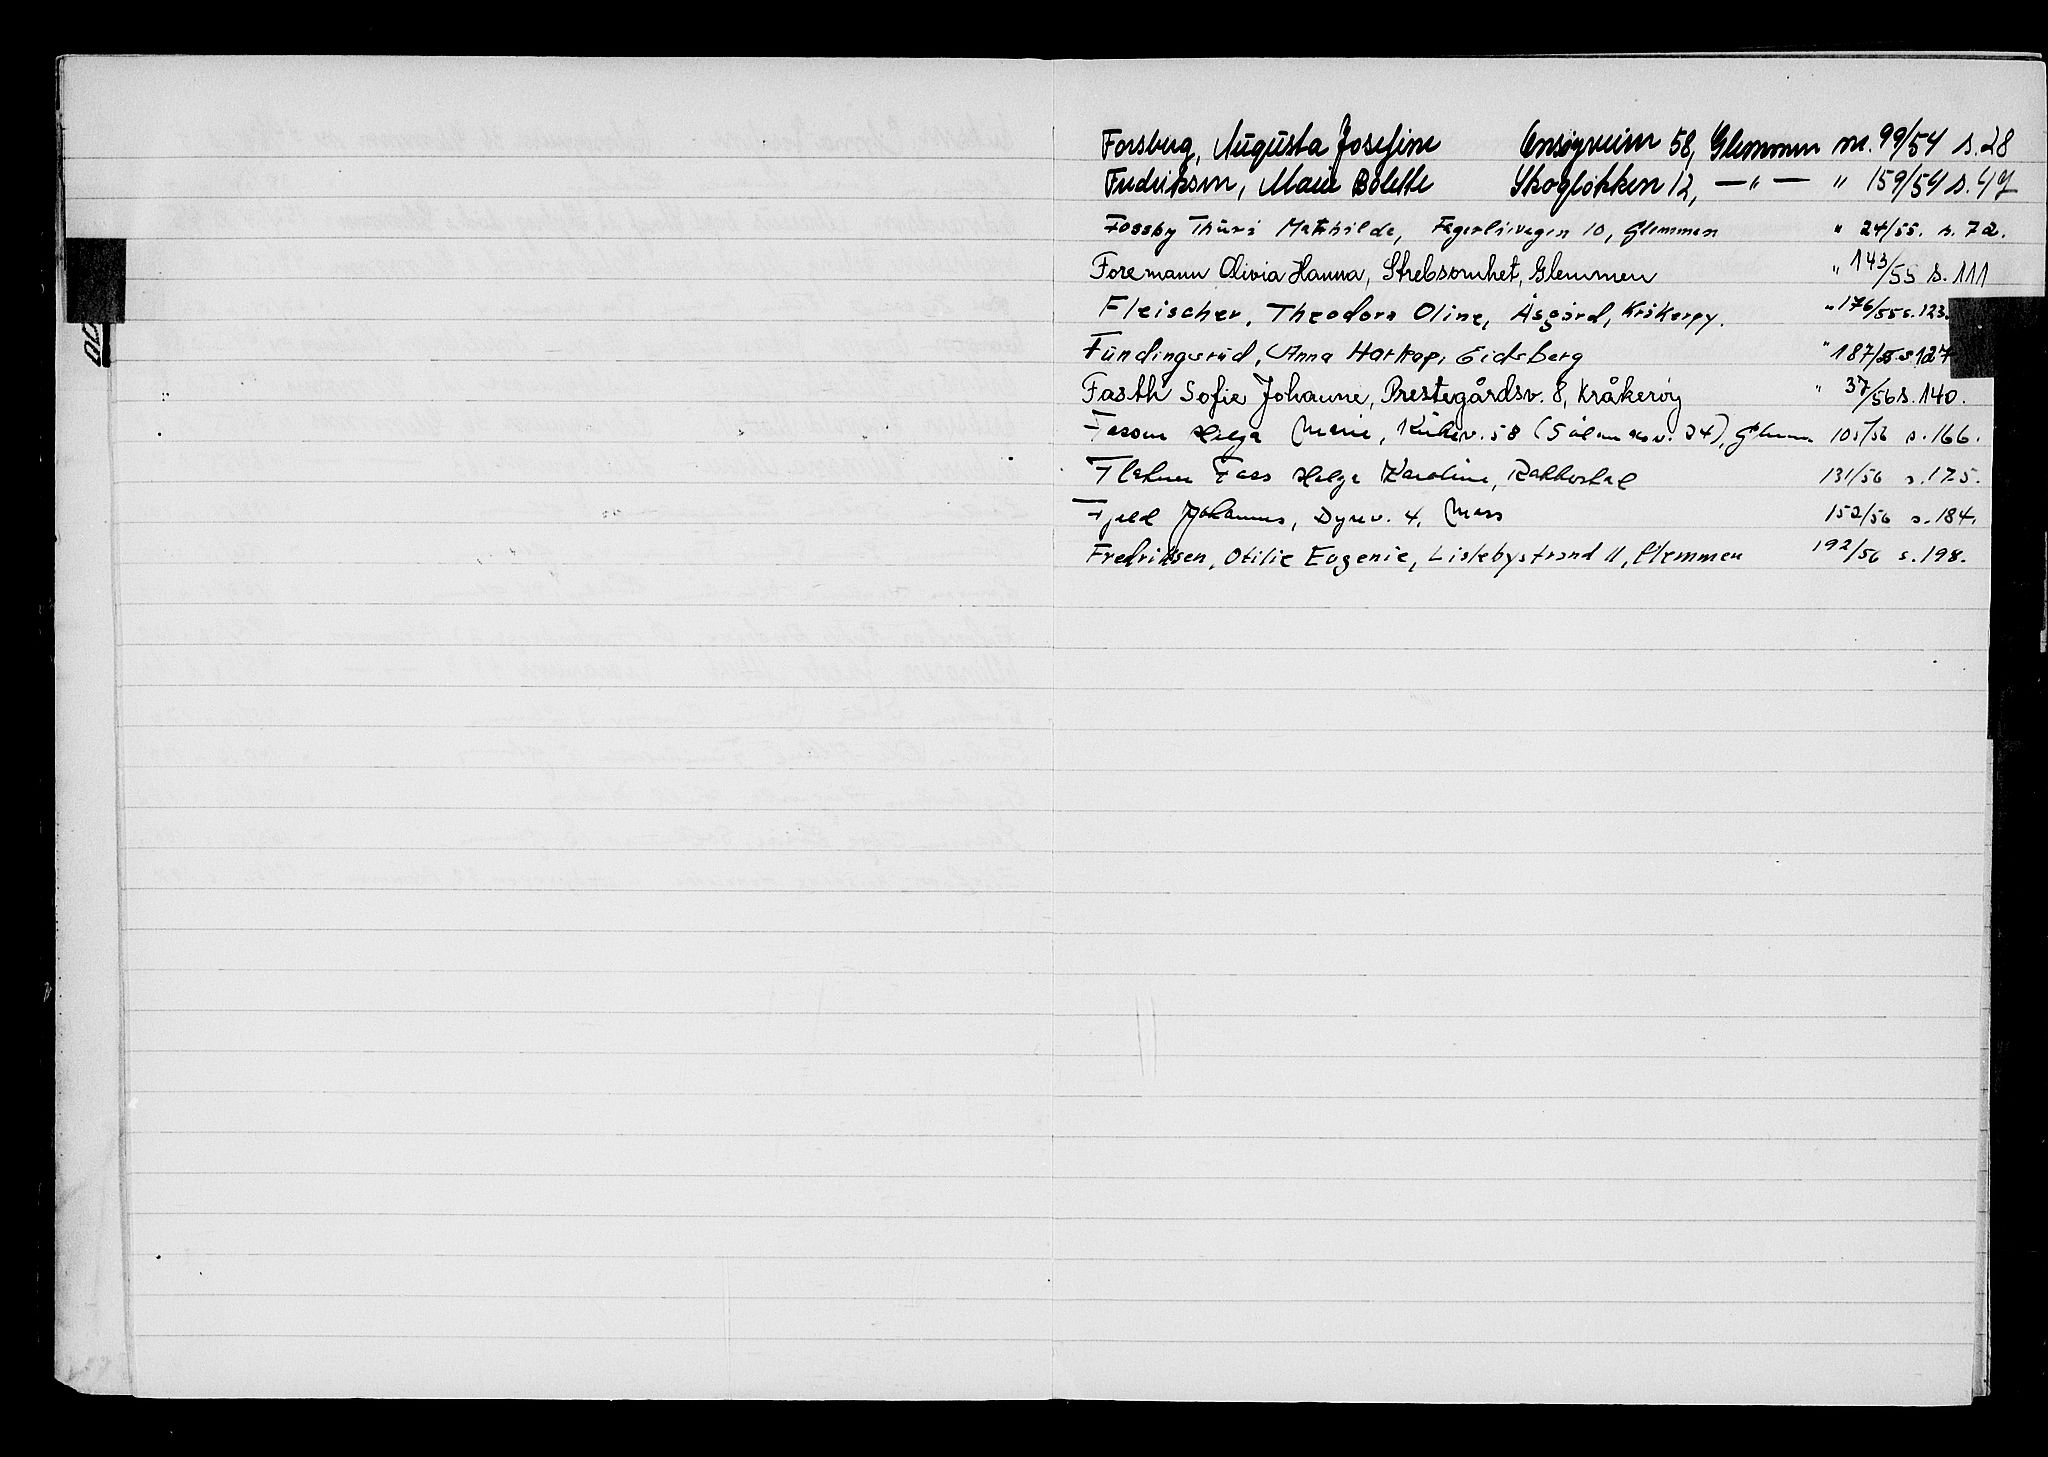 Forsberg, Augusta Josefine Onsøyveien 58, Glemmen nr. 99/54 s. 28
Fredriksen, Marie Bolette Skogløkken 12, — " — " 159/54 s. 47
Fossby Thura Mathilde, Fagerlivegen 10, Glemmen " 24/55. s. 72.
Foremann Olivia Hanna, Strebsomhet, Glemmen " 143/55 s. 111
Fleischer, Theodora Oline, Åsgård, Kråkerøy. " 176/55 s. 123.
Fundingsrud, Anna Harkop, Eidsberg " 187/55 s 127
Fasth Sofie Johanne, Prestegårdsv. 8, Kråkerøy " 37/56 s. 140.
Helga Marie, 58 24), Glemm. 105/56 s. 166.
Foss Helga Karoline, Rakkestad 131/56 s. 175.
Fjeld Johannes, Dyrev. 4, Moss 152/56 s. 184.
Fredriksen, Otilie Eugenie, Lislebystrand 11, Glemmen 192/56 s. 198.